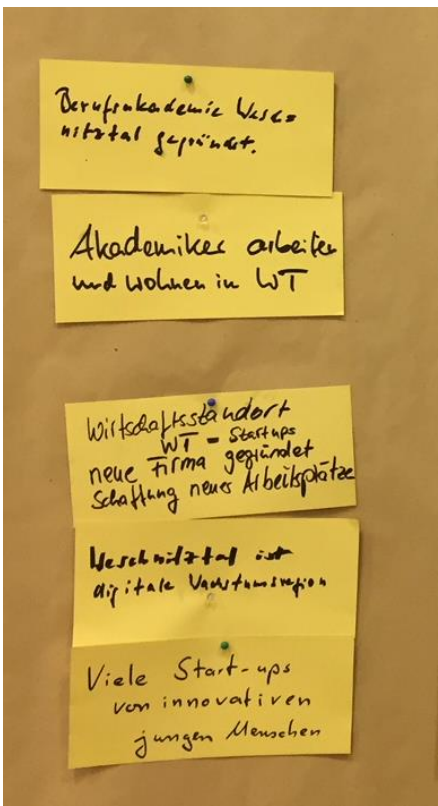 Berufsakademie Wesch=
nitztal gegründet.
Akademiker arbeiten
und wohnen in WT
Wirtschaftsstandort
WT - Startups
neue Firma gegründet
Schaffung neuer Arbeitsplätze
Weschnitztal ist
digitale Wachstumsregion
Viele Start-ups
von innovativen
jungen Menschen